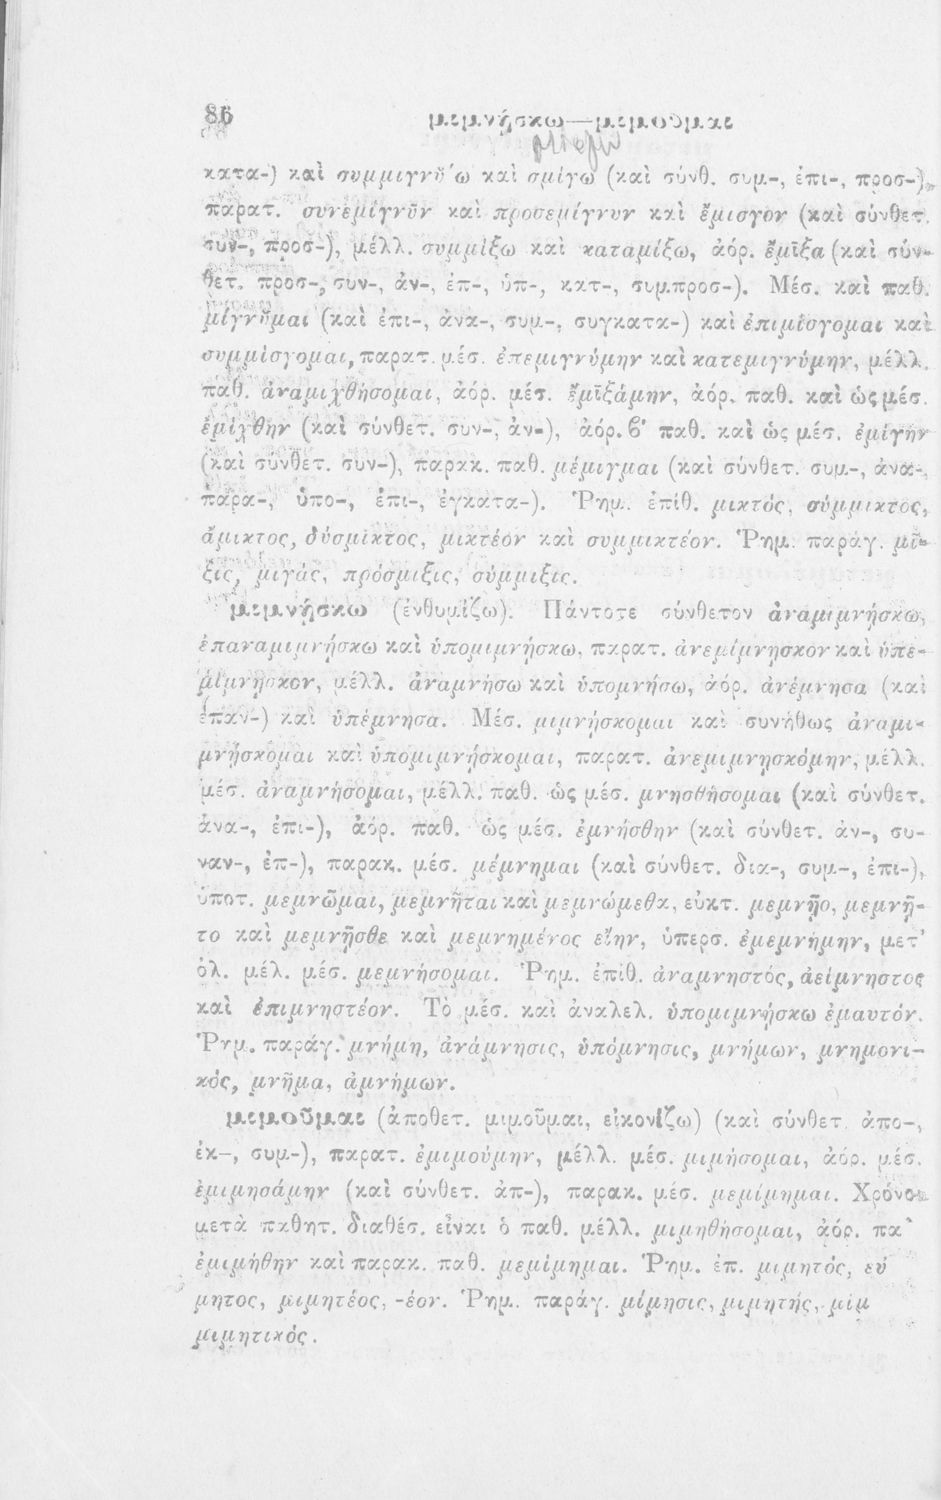 86 μιμνήσκω—μιμοῦμαι
κατα-) καὶ συμμιγνύω καὶ σμίγω (καὶ σύνθ. συμ-, ἐπι-, προσ-),
παρατ. συνεμίγνῡν καὶ προσεμίγνυν καὶ ἔμισγον (καὶ σύνθετ.
συν-, προσ-), μέλλ. συμμίξω καὶ καταμίξω, ἀόρ. ἔμῑξα (καὶ σύν-
θετ. προσ-, συν-, ἀν-, ἐπ-, ὑπ-, κατ-, συμπροσ-). Μέσ. καὶ παθ.
μίγνῠμαι (καὶ ἐπι-, ἀνα-, συμ-, συγκατα-) καὶ ἐπιμίσγομαι καὶ
συμμίσγομαι, παρατ. μέσ. ἐπεμιγνύμην καὶ κατεμιγνύμην, μέλλ.
παθ. ἀναμιχθήσομαι, ἀόρ. μέσ. ἐμῑξάμην, ἀόρ. παθ. καὶ ὡς μέσ.
ἐμίχθην (καὶ σύνθετ. συν-, ἀν-), ἀόρ. β' παθ. καὶ ὡς μέσ. ἐμίγην
(καὶ σύνθετ. συν-), παρακ. παθ. μέμιγμαι (καὶ σύνθετ. συμ-, ἀνα-,
παρα-, ὑπο-, ἐπι-, ἐγκατα-). Ῥημ. ἐπίθ. μικτός, σύμμικτος,
ἄμικτος, δύσμικτος, μικτέον καὶ συμμικτέον. Ῥημ. παράγ. μῖ-
ξις, μιγάς, πρόσμιξις, σύμμιξις.
μιμνήσκω (ἐνθυμίζω). Πάντοτε σύνθετον ἀναμιμνήσκω,
ἐπαναμιμνήσκω καὶ ὑπομιμνήσκω, παρατ. ἀνεμίμνησκον καὶ ὑπε-
μίμνησκον, μέλλ. ἀναμνήσω καὶ ὑπομνήσω, ἀόρ. ἀνέμνησα (καὶ
ἐπαν-) καὶ ὑπέμνησα. Μέσ. μιμνήσκομαι καὶ συνήθως ἀναμι-
μνήσκομαι καὶ ὑπομιμνήσκομαι, παρατ. ἀνεμιμνησκόμην, μέλλ.
μέσ. ἀναμνήσομαι, μέλλ. παθ. ὡς μέσ. μνησθήσομαι (καὶ σύνθετ.
ἀνα-, ἐπι-), ἀόρ. παθ. ὡς μέσ. ἐμνήσθην (καὶ σύνθετ. ἀν-, συ-
ναν-, ἐπ-), παρακ. μέσ. μέμνημαι (καὶ σύνθετ. δια-, συμ-, ἐπι-),
ὑποτ. μεμνῶμαι, μεμνῆται καὶ μεμνώμεθα, εὐκτ. μεμνῇο, μεμνῇ-
το καὶ μεμνῇσθε καὶ μεμνημένος εἴην, ὑπερσ. ἐμεμνήμην, μετ'
ὀλ. μέλ. μέσ. μεμνήσομαι. Ῥημ. ἐπίθ. ἀναμνηστός, ἀείμνηστος
καὶ ἐπιμνηστέον. Τὸ μέσ. καὶ ἀναλελ. ὑπομιμνήσκω ἐμαυτόν.
Ῥημ. παράγ. μνήμη, ἀνάμνησις, ὑπόμνησις, μνήμων, μνημονι-
κός, μνῆμα, ἀμνήμων.
μιμοῦμαι (ἀποθετ. μιμοῦμαι, εἰκονίζω) (καὶ σύνθετ. ἀπο-,
ἐκ-, συμ-), παρατ. ἐμιμούμην, μέλλ. μέσ. μιμήσομαι, ἀόρ. μέσ.
ἐμιμησάμην (καὶ σύνθετ. ἀπ-), παρακ. μέσ. μεμίμημαι. Χρόνοι
μετὰ παθητ. διαθέσ. εἶναι ὁ παθ. μέλλ. μιμηθήσομαι, ἀόρ. πα
ἐμιμήθην καὶ παρακ. παθ. μεμίμημαι. Ῥημ. ἐπ. μιμητός, εὐ
μητος, μιμητέος, -έον. Ῥημ. παράγ. μίμησις, μιμητής, μίμ
μιμητικός.